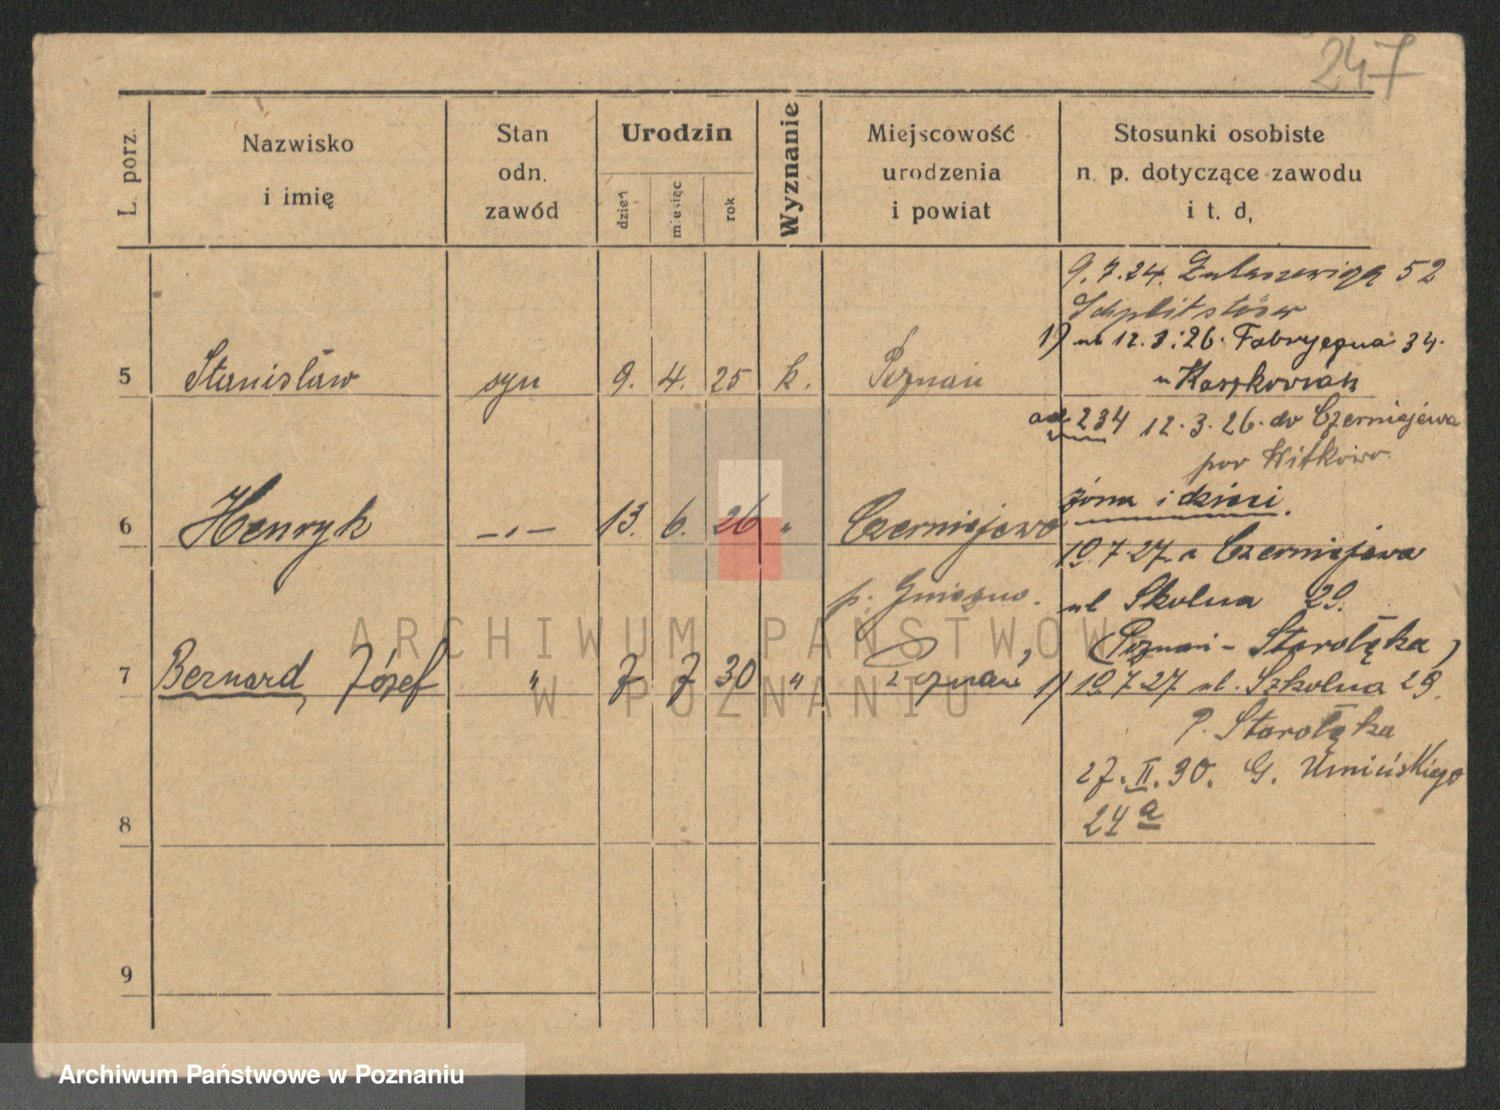 247
L. porz.
Nazwisko
i imię
Stan
odn.
zawód
Urodzin
dzień
miesiąc
rok
Wyznanie
Miejscowość
urodzenia
i powiat
Stosunki osobiste
n. p. dotyczące zawodu
i t. d,
9.7.24. 52
1) 12.3.26. 34.
5 Stanisław syn 9. 4. 25 k. Poznań
234 12.3.26. do Czerniejewa
pow Witkowo
6 Henryk -„- 13. 6. 26 „ Czerniejewo
p. Gniezno.
żona i dzieci.
19.7.27 z Czerniejewa
ul Skolna 29.
(Poznań - Starołęka)
7 Bernard, Józef „ 7 7 30 „ Poznań
1) 19.7.27 ul. Szkolna 29.
P. Starołęka
27.II.30. G. Umińskiego
24a
8
9
ARCHIWUM PAŃSTWOW
W POZNANIU
Archiwum Państwowe w Poznaniu